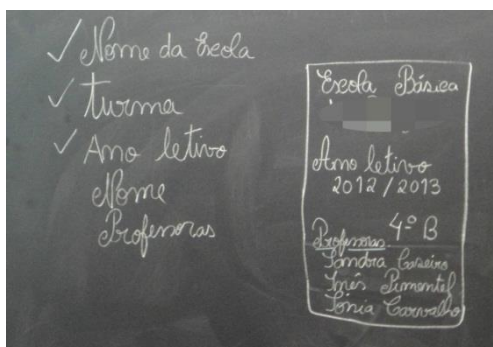 ✓ Nome da Escola
✓ turma
✓ Ano letivo
Nome
Professoras
Escola Básica
Ano letivo
2012/2013
4º B
Professoras
Sandra Caseiro
Inês Pimentel
Sónia Carvalho